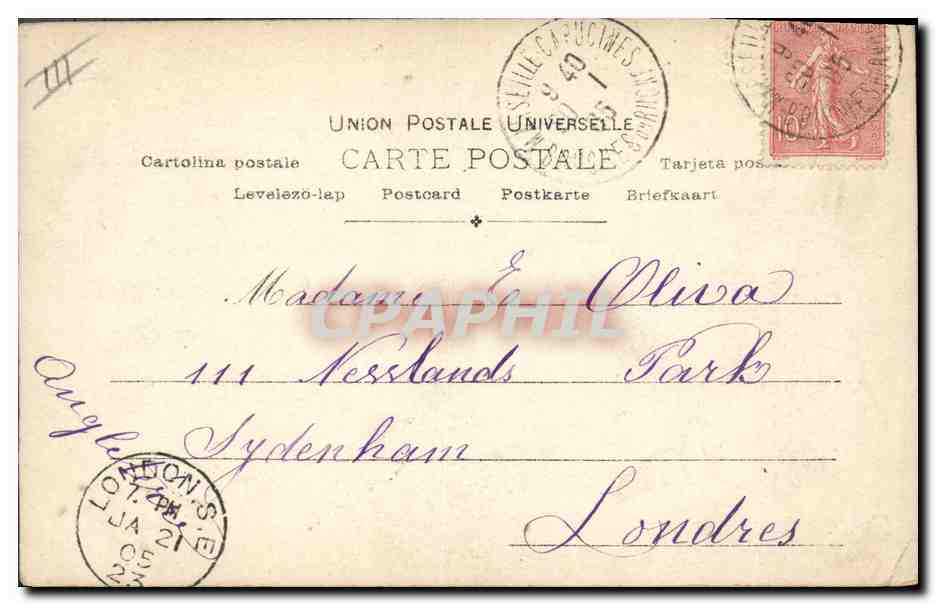 III
UNION POSTALE UNIVERSELLE
Cartolina postale CARTE POSTALE Tarjeta pos
Levelezö-lap Postcard Postkarte Briefkaart
SEILLE-CAPUCINES
9 40
10
Madame E. Oliva
CPAPHIL
111 Nesslands Park
Sydenham
Londres
Angleterre
LONDON.S.E
7. PM
JA 21
05